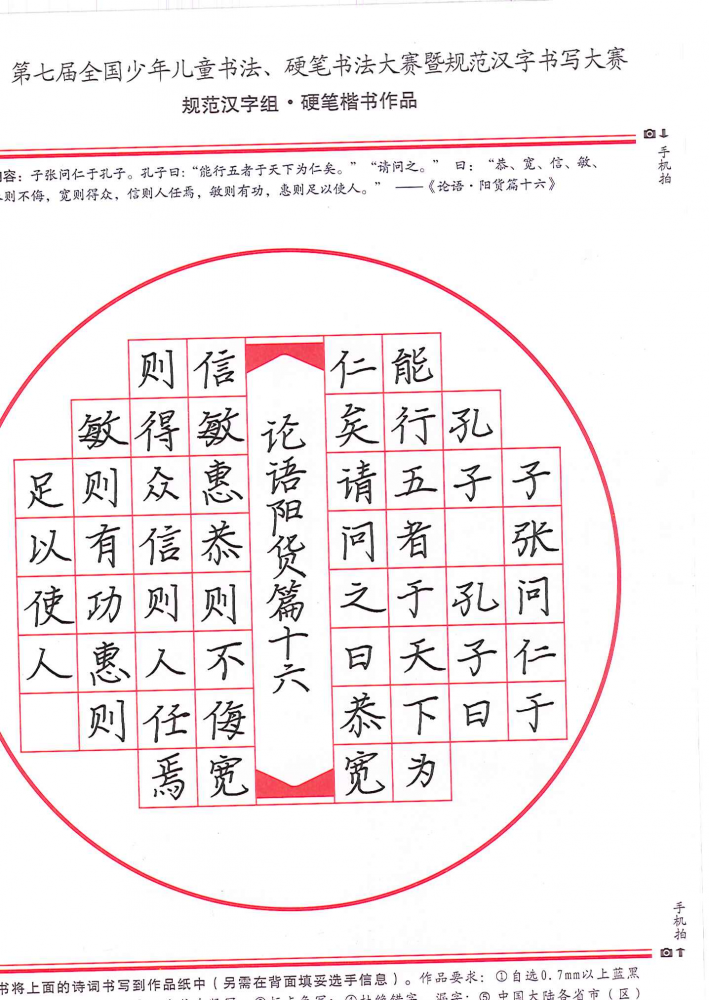 第七届全国少年儿童书法、硬笔书法大赛暨规范汉字书写大赛
规范汉字组·硬笔楷书作品
手机拍
容：子张问仁于孔子。孔子曰：“能行五者于天下为仁矣。”“请问之。” 曰：“恭、宽、信、敏、
则不侮，宽则得众，信则人任焉，敏则有功，惠则足以使人。” ——《论语·阳货篇十六》
子张问仁于
孔子 孔子曰
能行五者于天下为
仁矣请问之曰恭宽
论语阳货篇十六
信敏惠恭则不侮宽
则得众信则人任焉
敏则有功惠则
足以使人
手机拍
书将上面的诗词书写到作品纸中（另需在背面填妥选手信息）。作品要求：①自选0.7mm以上蓝黑
④杜绝错字、漏字；⑤ 中国大陆各省市（区）